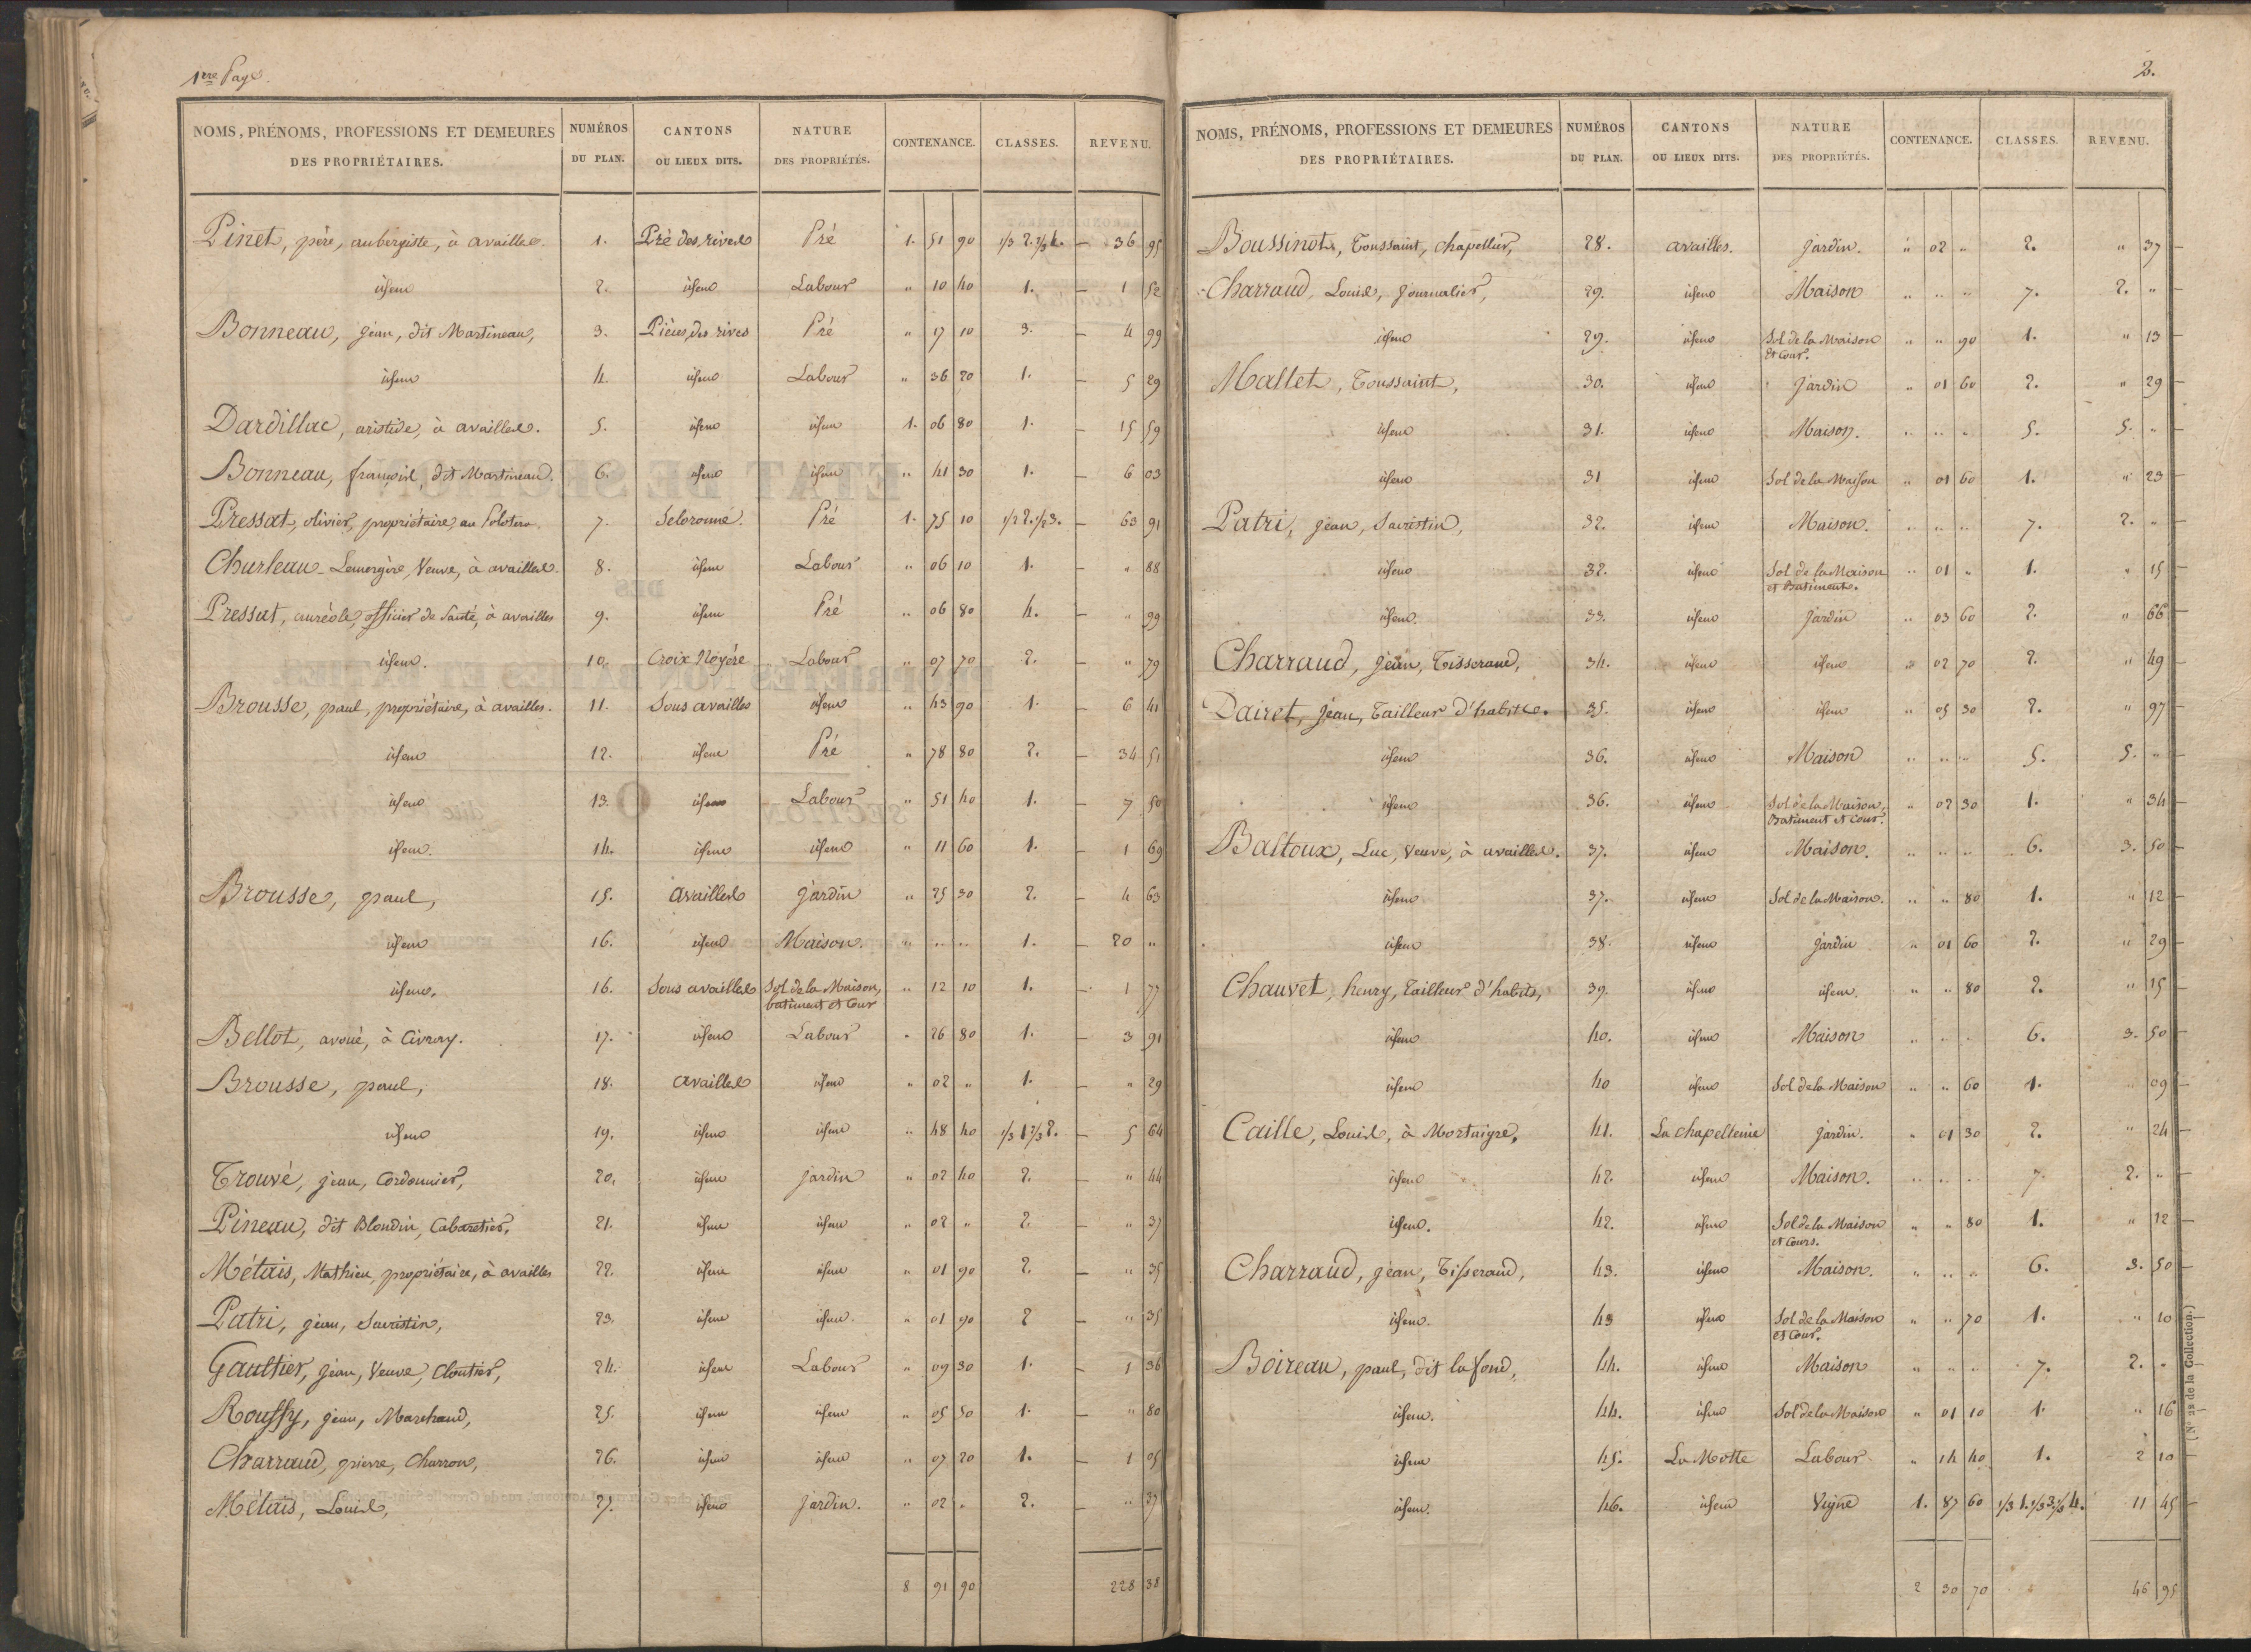 1re Page.
NOMS, PRÉNOMS, PROFESSIONS ET DEMEURES DES PROPRIÉTAIRES. | NUMÉROS DU PLAN. | CANTONS OU LIEUX DITS. | NATURE DES PROPRIÉTÉS. | CONTENANCE. | CLASSES. | REVENU.
Pinet, père, aubergiste, à availles. 1. Pré des rives Pré 1. 51 90 1/3 2. 2/3 4. 36 95
idem 2. idem Labour " 10 40 1. 1 52
Bonneau, jean, dit Martineau, 3. Pièces des rives Pré " 17 10 3. 4 99
idem 4. idem Labour " 36 20 1. 5 29
Dardillac, aristide, à availles. 5. idem idem 1. 06 80 1. 15 59
Bonneau, françois, dit Martineau. 6. idem idem " 41 30 1. 6 03
Pressat, olivier, propriétaire, au 7. Pré 1. 75 10 1/2 2. 1/2 3. 63 91
Churleau-Lemergère Veuve, à availles. 8. idem Labour " 06 10 1. " 88
Pressat, auréole, officier de Santé, à availles 9. idem Pré " 06 80 4. " 99
idem. 10. Croix Noyère Labour " 07 70 2. " 79
Brousse, paul, propriétaire, à availles. 11. Sous availles idem " 43 90 1. 6 41
idem 12. idem Pré " 78 80 2. 34 51
idem 13. idem Labour " 51 40 1. 7 50
idem. 14. idem idem " 11 60 1. 1 69
Brousse, paul, 15. availles jardin " 25 30 2. 4 63
idem 16. idem Maison. " " " 1. 20 "
idem. 16. Sous availles Sol de la Maison, batiment et Cour " 12 10 1. 1 77
Bellot, avoué, à Civray. 17. idem Labour " 26 80 1. 3 91
Brousse, paul, 18. availles idem " 02 " 1. " 29
idem 19. idem idem " 48 40 1/3 1 2/3 2. 5 64
Trouvé, jean, Cordonnier, 20. idem jardin " 02 40 2. " 44
Pineau, dit Blondin, Cabaretier, 21. idem idem " 02 " 2. " 37
Métais, Mathieu, propriétaire, à availles 22. idem idem " 01 90 2. " 35
Patri, jean, Sacristin, 23. idem idem. " 01 90 2 " 35
Gaultier, jean, Veuve, Cloutier, 24. idem Labour " 09 30 1. 1 36
Roussy, jean, Marchand, 25. idem idem " 05 50 1. " 80
Charraud, pierre, Charron, 26. idem idem " 07 20 1. 1 05
Métais, Louis, 27. idem jardin. " 02 " 2. " 37
8 91 90 228 38
2.
NOMS, PRÉNOMS, PROFESSIONS ET DEMEURES DES PROPRIÉTAIRES. | NUMÉROS DU PLAN. | CANTONS OU LIEUX DITS. | NATURE DES PROPRIÉTÉS. | CONTENANCE. | CLASSES. | REVENU.
Boussinot, Toussaint, chapellier, 28. availles. jardin. " 02 " 2. " 37
Charraud, Louis, journalier, 29. idem Maison " " " 7. 2. "
idem 29. idem Sol de la Maison et Cour. " " 90 1. " 13
Mallet, Toussaint, 30. idem jardin " 01 60 2. " 29
idem 31. idem Maison. " " " 5. 5. "
idem 31 idem Sol de la Maison " 01 60 1. " 23
Patri, jean, Sacristin, 32. idem Maison. " " " 7. 2. "
idem 32. idem Sol de la Maison et Batiment. " 01 " 1. " 15
idem. 33. idem jardin " 03 60 2. " 66
Charraud, jean, Tisserand, 34. idem idem " 02 70 2. " 49
Dairet, jean, Tailleur d'habits. 35. idem idem " 05 30 2. " 97
idem 36. idem Maison " " " 5. 5. "
idem 36. idem Sol de la Maison, Batiment et Cour. " 02 30 1. " 34
Baltoux, Luc, veuve, à availles. 37. idem Maison. " " " 6. 3. 50
idem 37. idem Sol de la Maison. " " 80 1. " 12
idem 38. idem jardin " 01 60 2. " 29
Chauvet, henry, tailleur d'habits, 39. idem idem. " " 80 2. " 15
idem 40. idem Maison " " " 6. 3. 50
idem 40 idem Sol de la Maison " " 60 1. " 09
Caille, Louis, à Mortaigre, 41. La chapellenie jardin. " 01 30 2. " 24
idem 42. idem Maison. " " " 7. 2. "
idem. 42. idem Sol de la Maison et Cours. " " 80 1. " 12
Charraud, jean, Tisserand, 43. idem Maison. " " " 6. 3. 50
idem. 43 idem Sol de la Maison et Cour. " " 70 1. " 10
Boireau, paul, dit lafond, 44. idem Maison " " " 7. 2. "
idem. 44. idem Sol de la Maison " 01 10 1. " 16
idem 45. La Motte Labour " 14 40 1. 2 10
idem. 46. idem Vigne 1. 87 60 1/3 1. 1/3 3. 1/3 4. 11 45
2 30 70 46 95
(N° 22 de la Collection.)